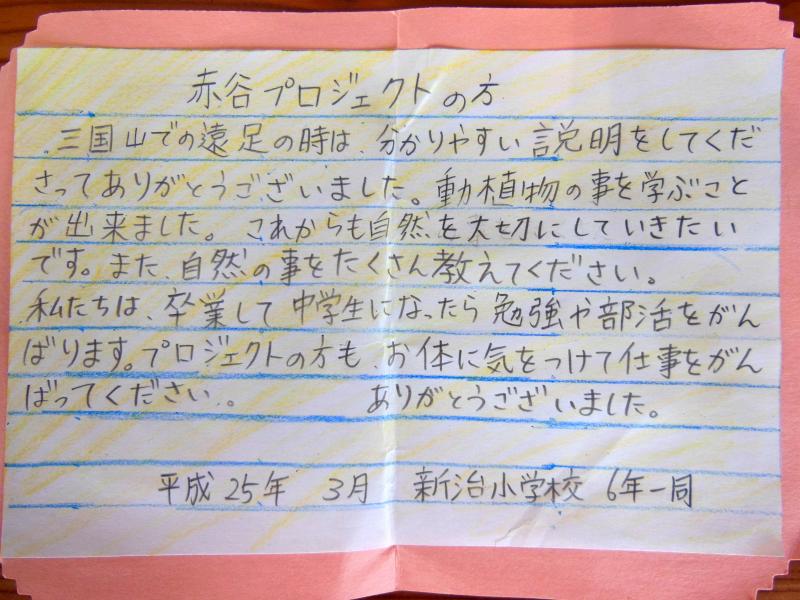 赤谷プロジェクトの方
三国山での遠足の時は、分かりやすい説明をしてくだ
さってありがとうございました。動植物の事を学ぶこと
が出来ました。これからも自然を大切にしていきたい
です。また、自然の事をたくさん教えてください。
私たちは、卒業して中学生になったら勉強や部活をがん
ばります。プロジェクトの方も、お体に気をつけて仕事をがん
ばってください。 ありがとうございました。
平成25年 3月 新治小学校 6年一同